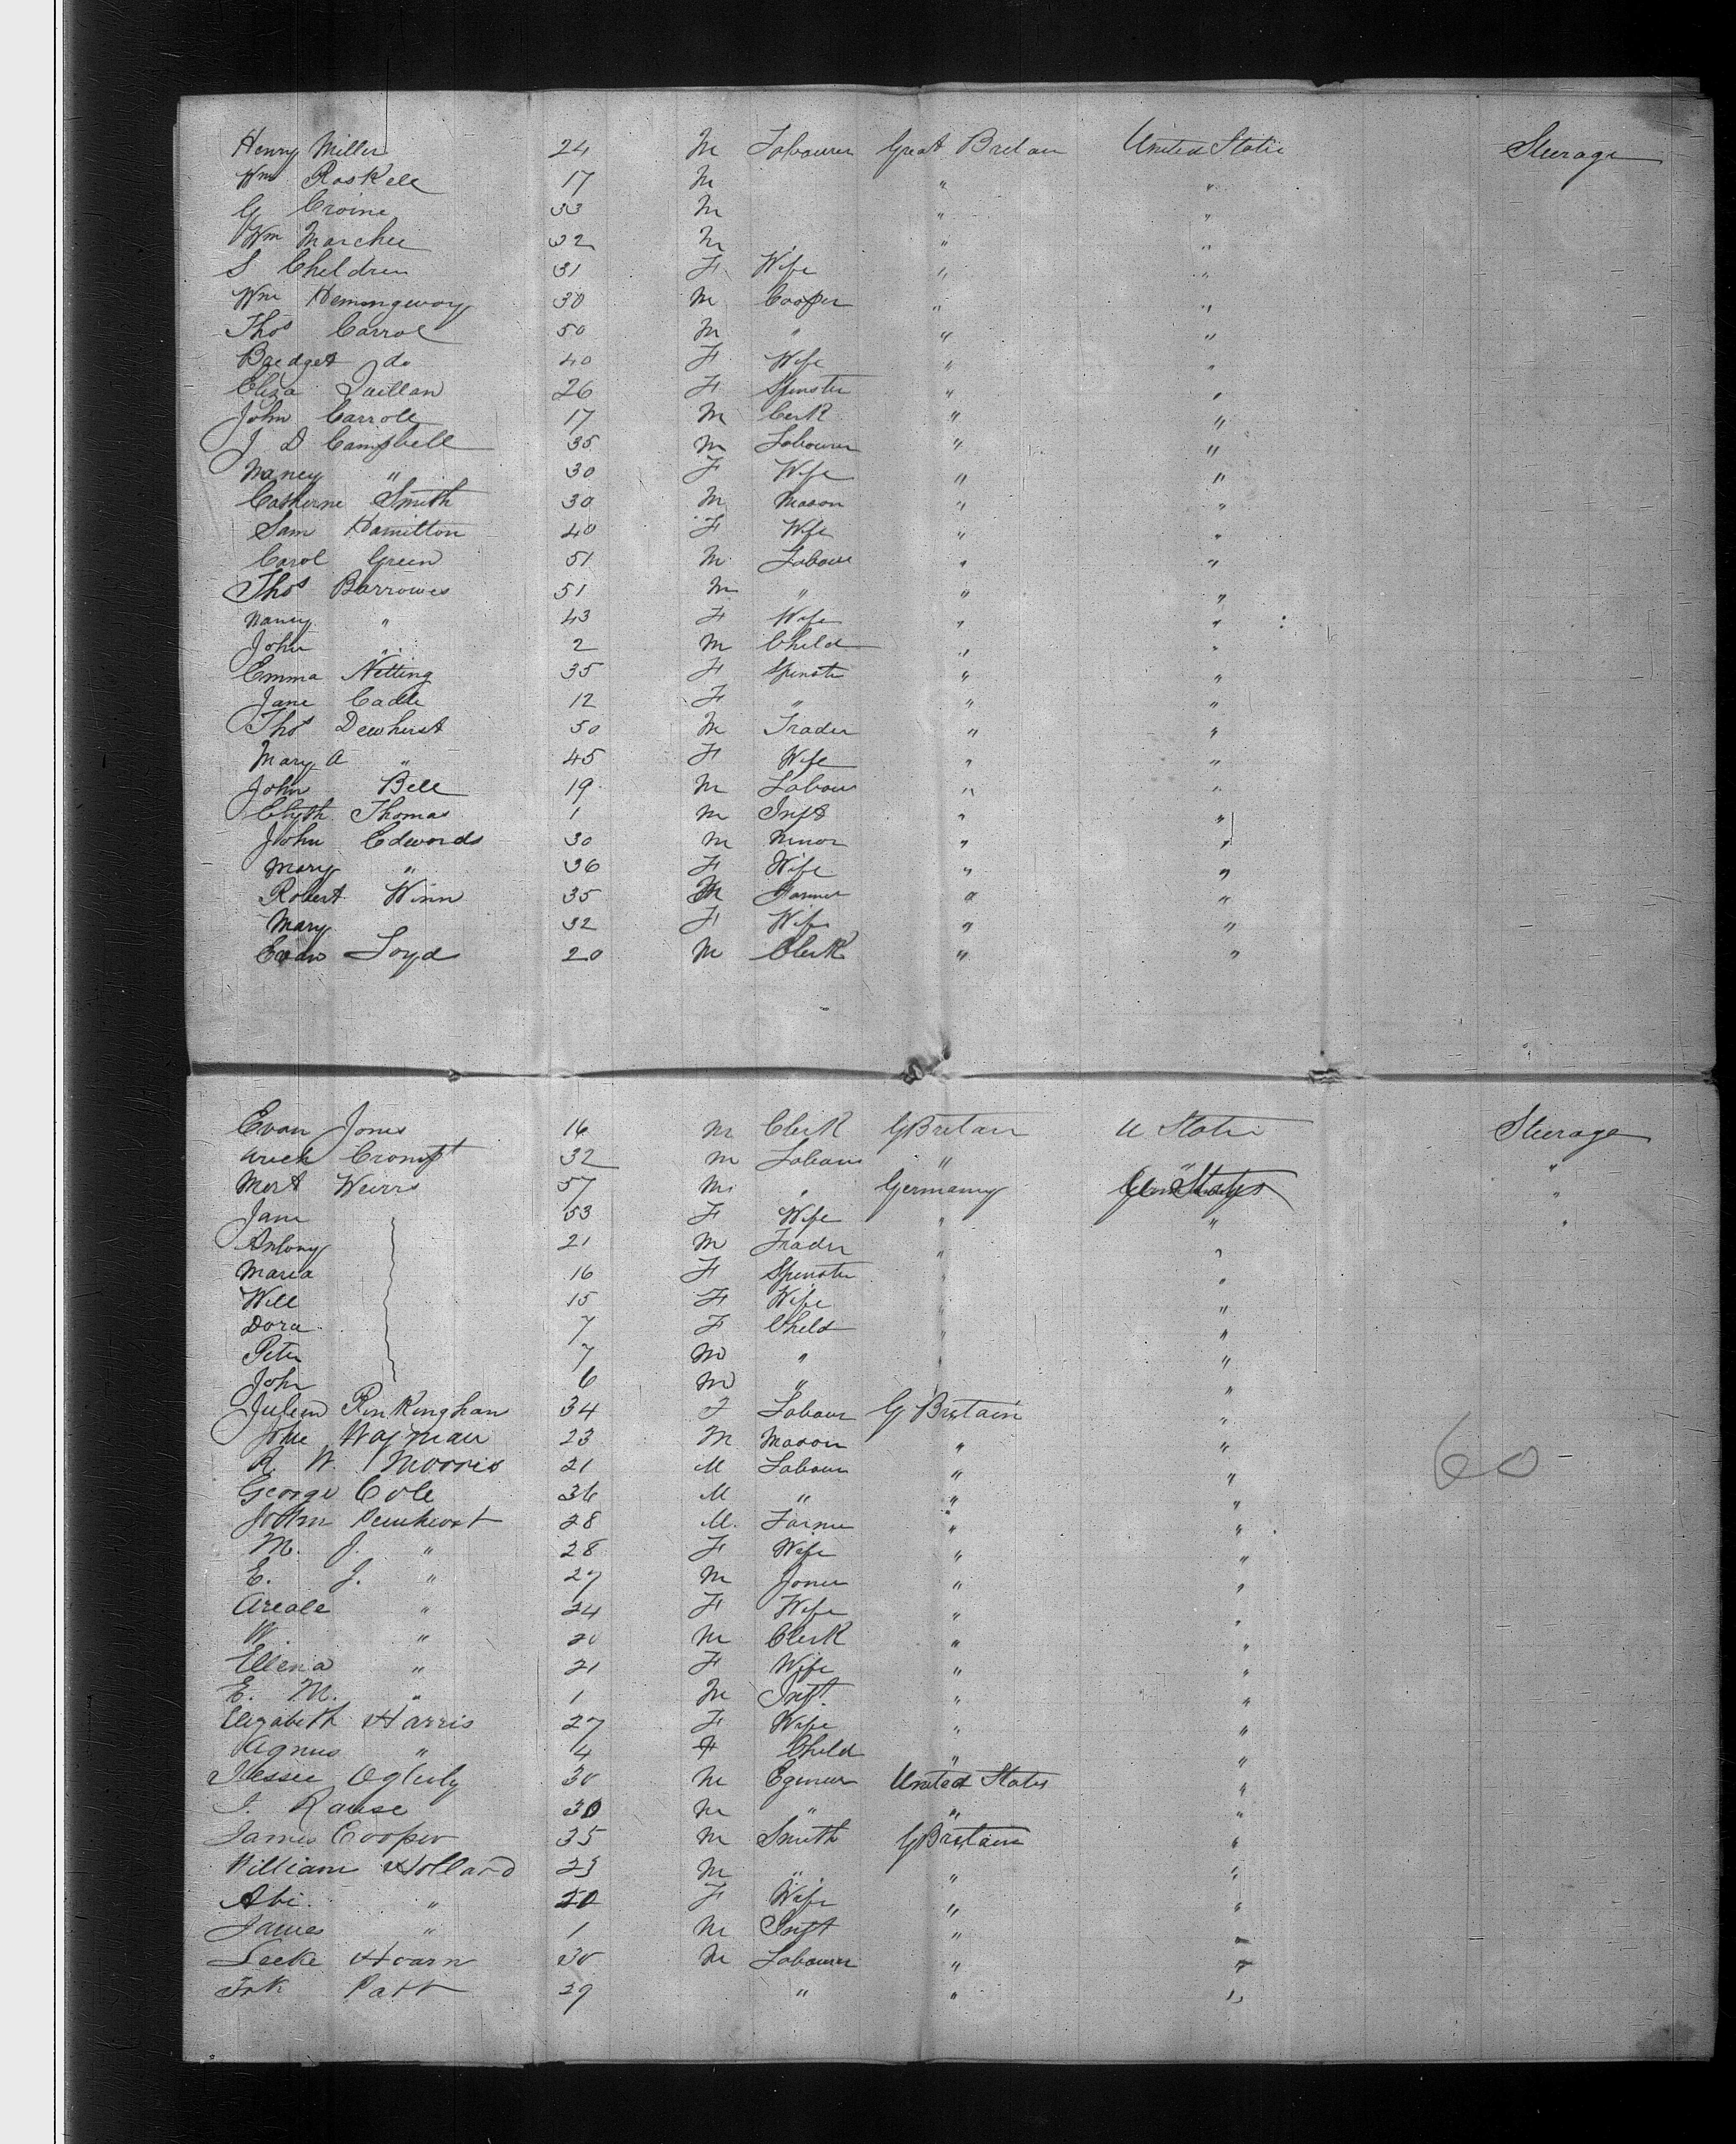 Henry Miller 24 M Labourer Great Bretan United State Steerage
Wm Roskell 17 M " "
G Croine 33 M " "
Wm Marchee 32 M " "
S Children 31 F Wife " "
Wm Hemingway 30 M Cooper " "
Thos Carrol 50 M " " "
Bredget do 40 F Wife " "
Eliza 26 F Spinster " "
John Carroll 17 M Cerk " "
J D Campbell 35 M Labourer " "
Nancy " 30 F Wife " "
Catherine Smith 30 M Mason " "
Sam Hamilton 40 F Wife " "
Carol Green 51 M Laboue " "
Thos Barrowes 51 M " " "
Nancy " 43 F Wife " "
John " 2 M Child " "
Emma Nitting 35 F Spinste " "
Jane Cadle 12 F " " "
Thos Dewhurst 50 M Trader " "
Mary A " 45 F Wife " "
John Bell 19 M Labour " "
Thomas 1 M Inft " "
John Edwords 30 M Minor " "
Mary " 36 F Wife " "
Robert Winn 35 M Farmer " "
Mary 32 F Wife " "
Evan Loyd 20 M Clerk " "
Evan Jones 16 M Clerk G Bretain U State Steerage
Cromft 32 M Labour " " "
Mert Weirrs 57 M " Germany "
Jane 53 F Wife " " "
Antony 21 M Trader " "
Maria 16 F Spinster " "
Will 15 F Wife " "
Dora 7 F Child " "
Peter 7 M " " "
John 6 M " " "
Julien Pinkinghan 34 F Labour G Bretain "
John Wajman 23 M Mason " "
R. W. Morris 21 M Labour " "
George Cole 36 M " " "
28 M. Farmer " "
M. J. " 28 F Wife " "
E. J. " 27 M Joner " "
" 24 F Wife " "
W. " 20 M Clerk " "
Ellena " 21 F Wife " "
E. M. " 1 M Inft. " "
Elizabeth Harris 27 F Wife " "
Agnus " 4 F Child " "
Jessie Ogleily 30 M Egineer United States "
J. Rause 30 M " " "
James Cooper 35 M Smith G Bretain "
William Hollard 23 M " " "
Abi. " 20 F Wife " "
James " 1 M Inft " "
Leeke Hoarn 30 M Labourer " "
Patt 29 " " "
60